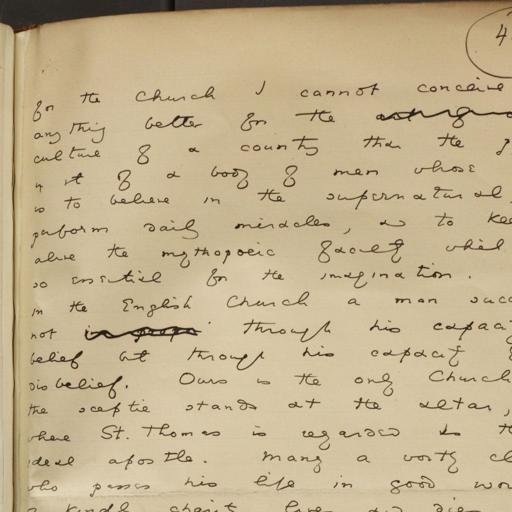 4
for the Church I cannot conceive
anything better for the
culture of a country than the
in it of a body of men whose
is to believe in the supernatural,
perform daily miracles, & to kee
alive the mythopoeic faculty which
so essential for the imagination.
in the English Church a man succ
not through his capacity
belief but through his capacity
disbelief. Ours is the only Church
the sceptic stands at the altar,
where St. Thomas is regarded as th
ideal apostle. Many a worthy cl
who passes his life in good wor
kindly charity lives and dies